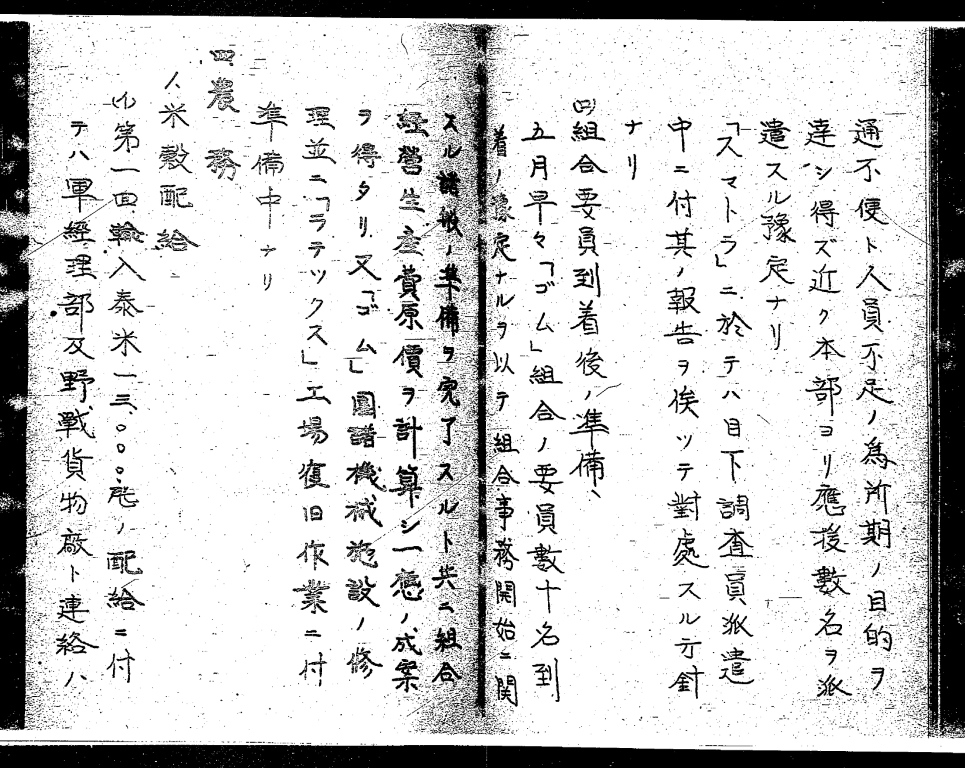 通不便ト人員不足ノ為所期ノ目的ヲ
達シ得ズ近ク本部ヨリ應援數名ヲ派
遣スル豫定ナリ
「スマトラ」ニ於テハ目下調査員派遣
中ニ付其ノ報告ヲ俟ツテ對處スル方針
ナリ
(四)組合要員到着後ノ準備、
五月早々「ゴム」組合ノ要員數十名到
着ノ豫定ナルヲ以テ組合事務開始ニ関
スル諸般ノ準備ヲ完了スルト共ニ組合
経営生産費原價ヲ計算シ一應ノ成案
ヲ得タリ又「ゴム」園諸機械施設ノ修
理並ニ「ラテックス」工場復旧作業ニ付
準備中ナリ
四農務
1、米穀配給
(イ)第一回輸入泰米一三〇〇〇瓲ノ配給ニ付
テハ軍経理部及野戰貨物廠ト連絡ハ